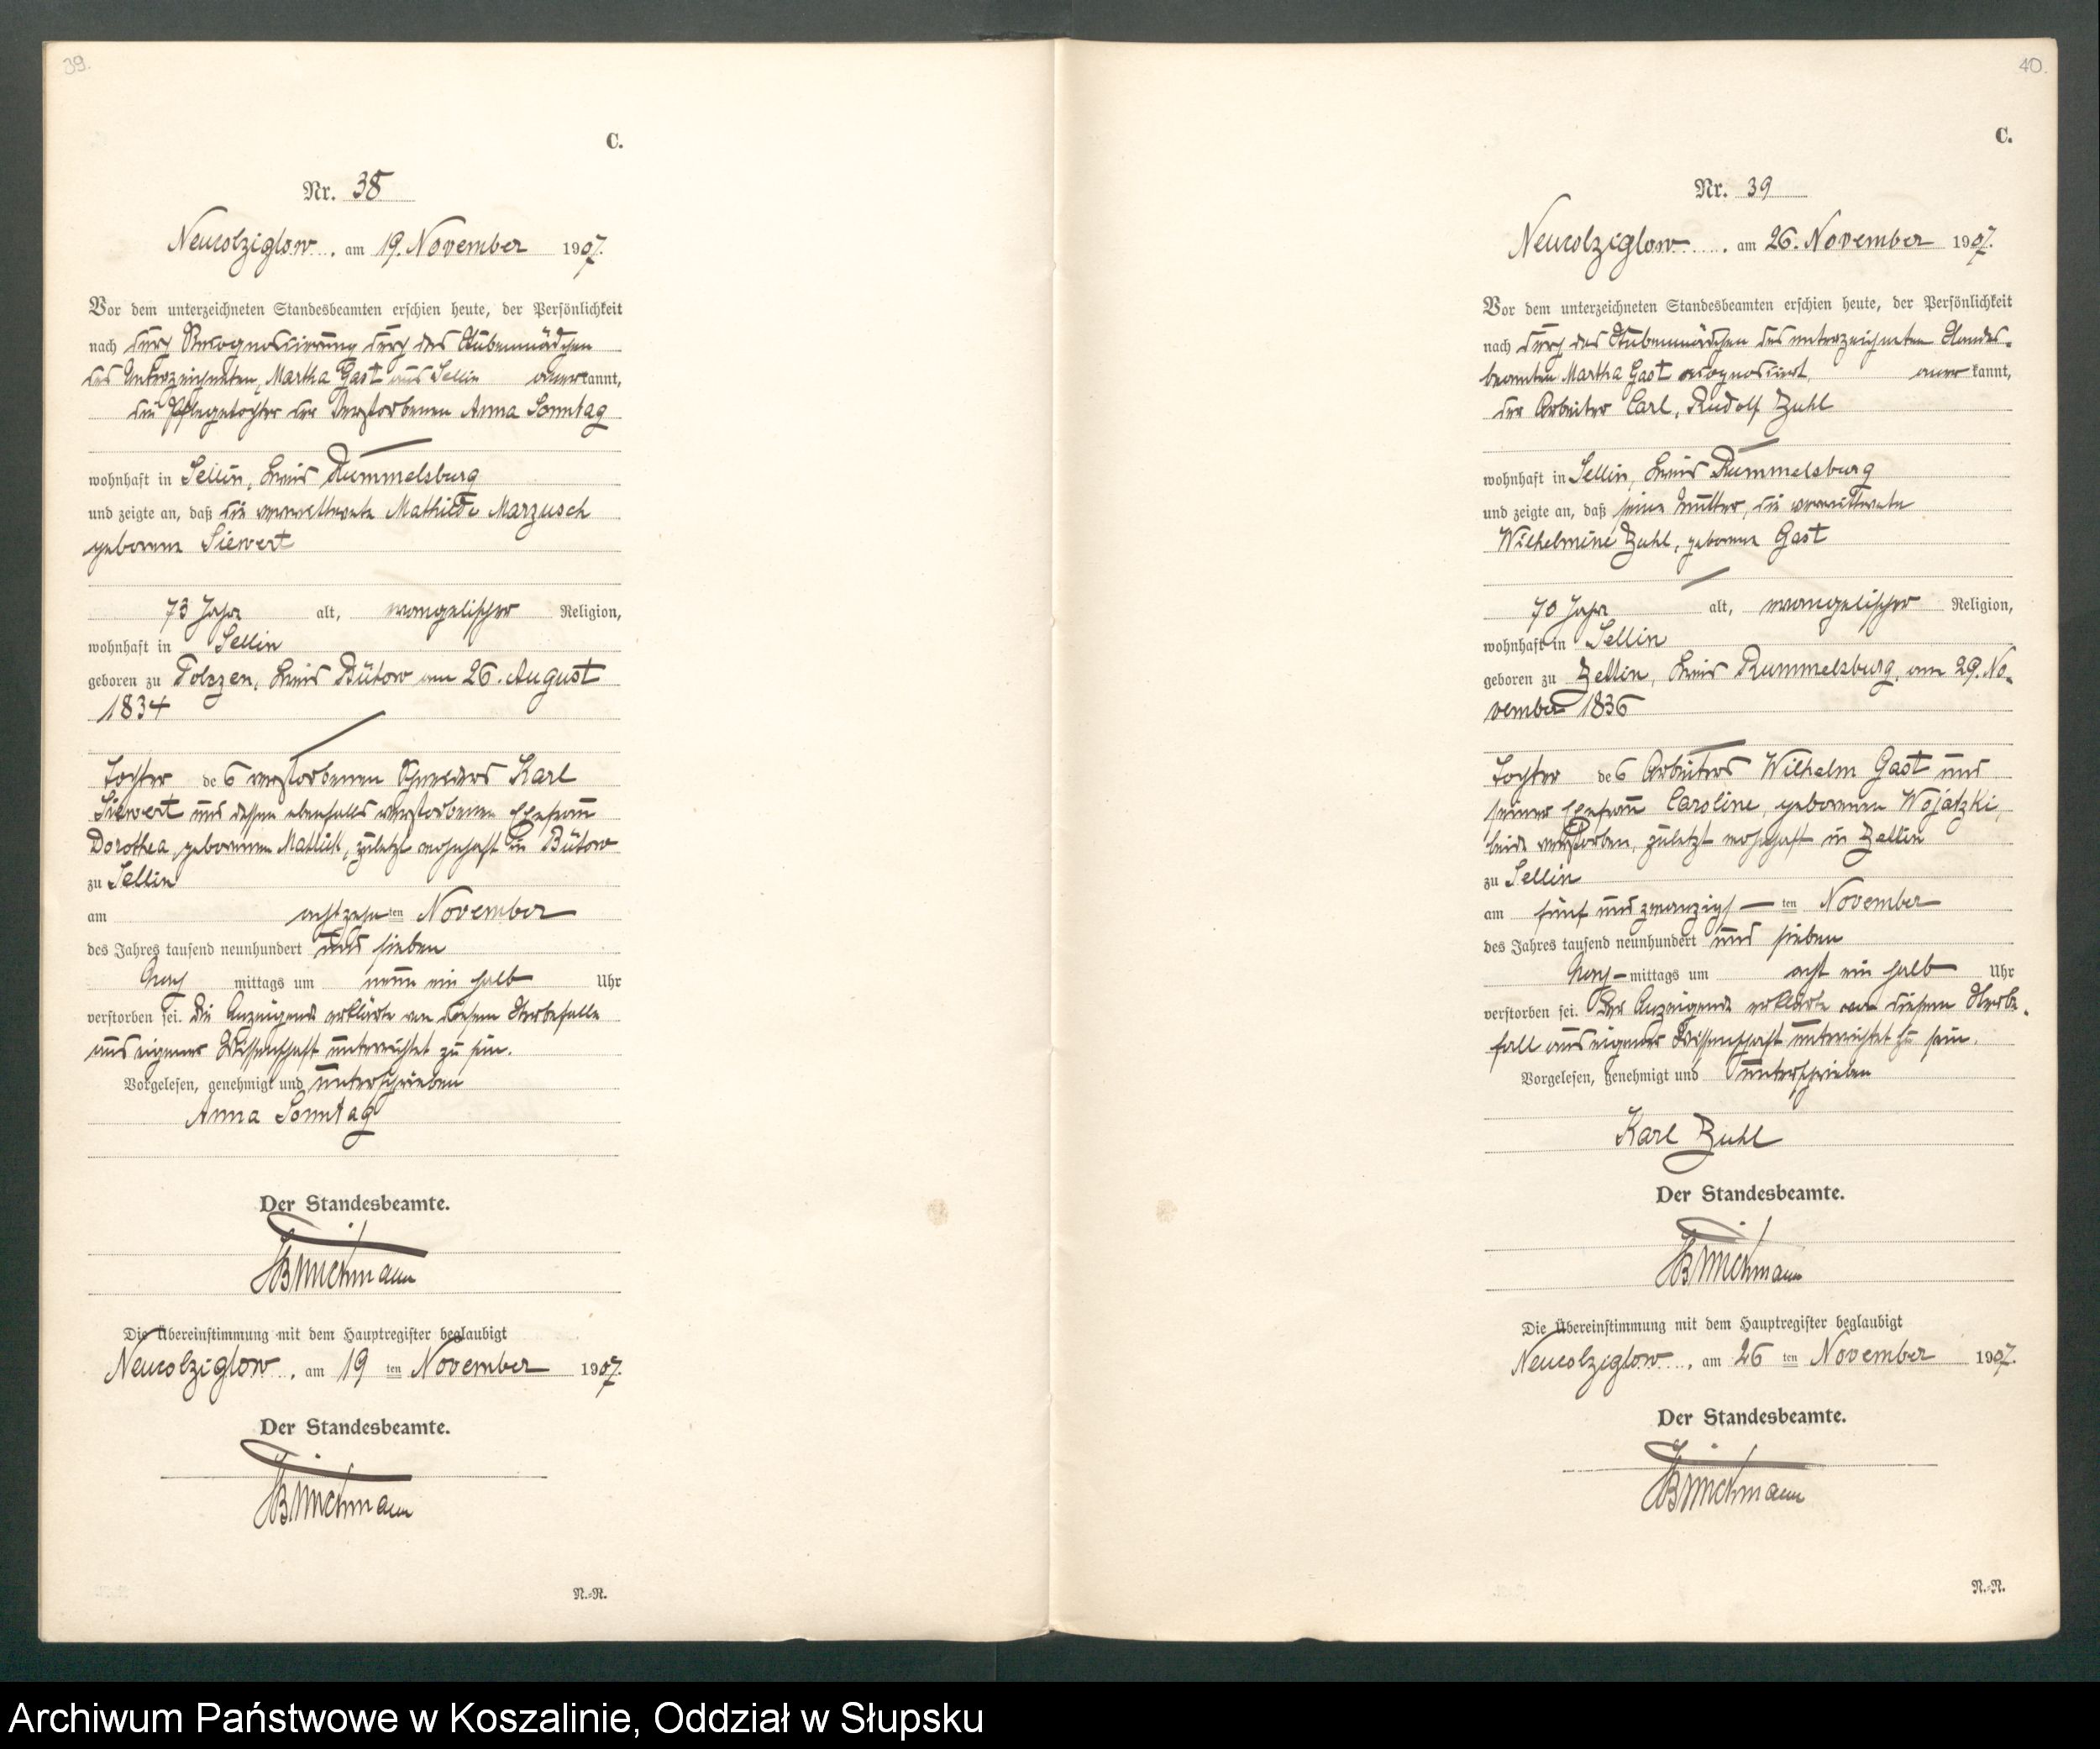 39.
C.
Nr. 38
Neucolziglow, am 19. November 1907.
Vor dem unterzeichneten Standesbeamten erschien heute, der Persönlichkeit
nach durch Recognoscierung durch das Stubenmädchen
des Unterzeichneten, Martha Gast aus Sellin anerkannt,
die Pflegetochter der Verstorbenen Anna Sonntag
wohnhaft in Sellin, Kreis Rummelsburg
und zeigte an, daß die verwittwete Mathilde Marzusch
geborene Siewert
73 Jahre alt, evangelischer Religion,
wohnhaft in Sellin
geboren zu Polszen, Kreis Bütow am 26. August
1834
Tochter des verstorbenen Karl
Siewert und dessen ebenfalls verstorbenen Ehefrau
Dorothea, geborenen zuletzt wohnhaft in Bütow
zu Sellin
am achtzehnten November
des Jahres tausend neunhundert und sieben
Nach mittags um neun ein halb Uhr
verstorben sei. Die Anzeigende erklärte von diesem Sterbefalle
aus eigener Wissenschaft unterrichtet zu sein.
Vorgelesen, genehmigt und unterschrieben
Anna Sonntag
Der Standesbeamte.
Die Übereinstimmung mit dem Hauptregister beglaubigt
Neucolziglow, am 19 ten November 1907.
Der Standesbeamte.
N.-R.
40.
C.
Nr. 39
Neucolziglow, am 26. November 1907.
Vor dem unterzeichneten Standesbeamten erschien heute, der Persönlichkeit
nach durch das Stubenmädchen des unterzeichneten Standes-
beamten Martha Gast recognosciert, anerkannt,
der Arbeiter Carl, Rudolf Zuhl
wohnhaft in Sellin, Kreis Rummelsburg
und zeigte an, daß seine Mutter, die verwittwete
Wilhelmine Zuhl, geborene Gast
70 Jahre alt, evangelischer Religion,
wohnhaft in Sellin
geboren zu Zettin, Kreis Rummelsburg, am 29. No-
vember 1836
Tochter des Arbeiters Wilhelm Gast und
seiner Ehefrau Caroline, geborenen Wojatzki,
beide verstorben, zuletzt wohnhaft in Zettin
zu Sellin
am fünf und zwanzigs-ten November
des Jahres tausend neunhundert und sieben
Nach-mittags um acht ein halb Uhr
verstorben sei. Der Anzeigende erklärte von diesem Sterbe-
fall aus eigener Wissenschaft unterrichtet zu sein.
Vorgelesen, genehmigt und unterschrieben
Karl Zuhl
Der Standesbeamte.
Die Übereinstimmung mit dem Hauptregister beglaubigt
Neucolziglow, am 26 ten November 1907.
Der Standesbeamte.
N.-R.
Archiwum Państwowe w Koszalinie, Oddział w Słupsku